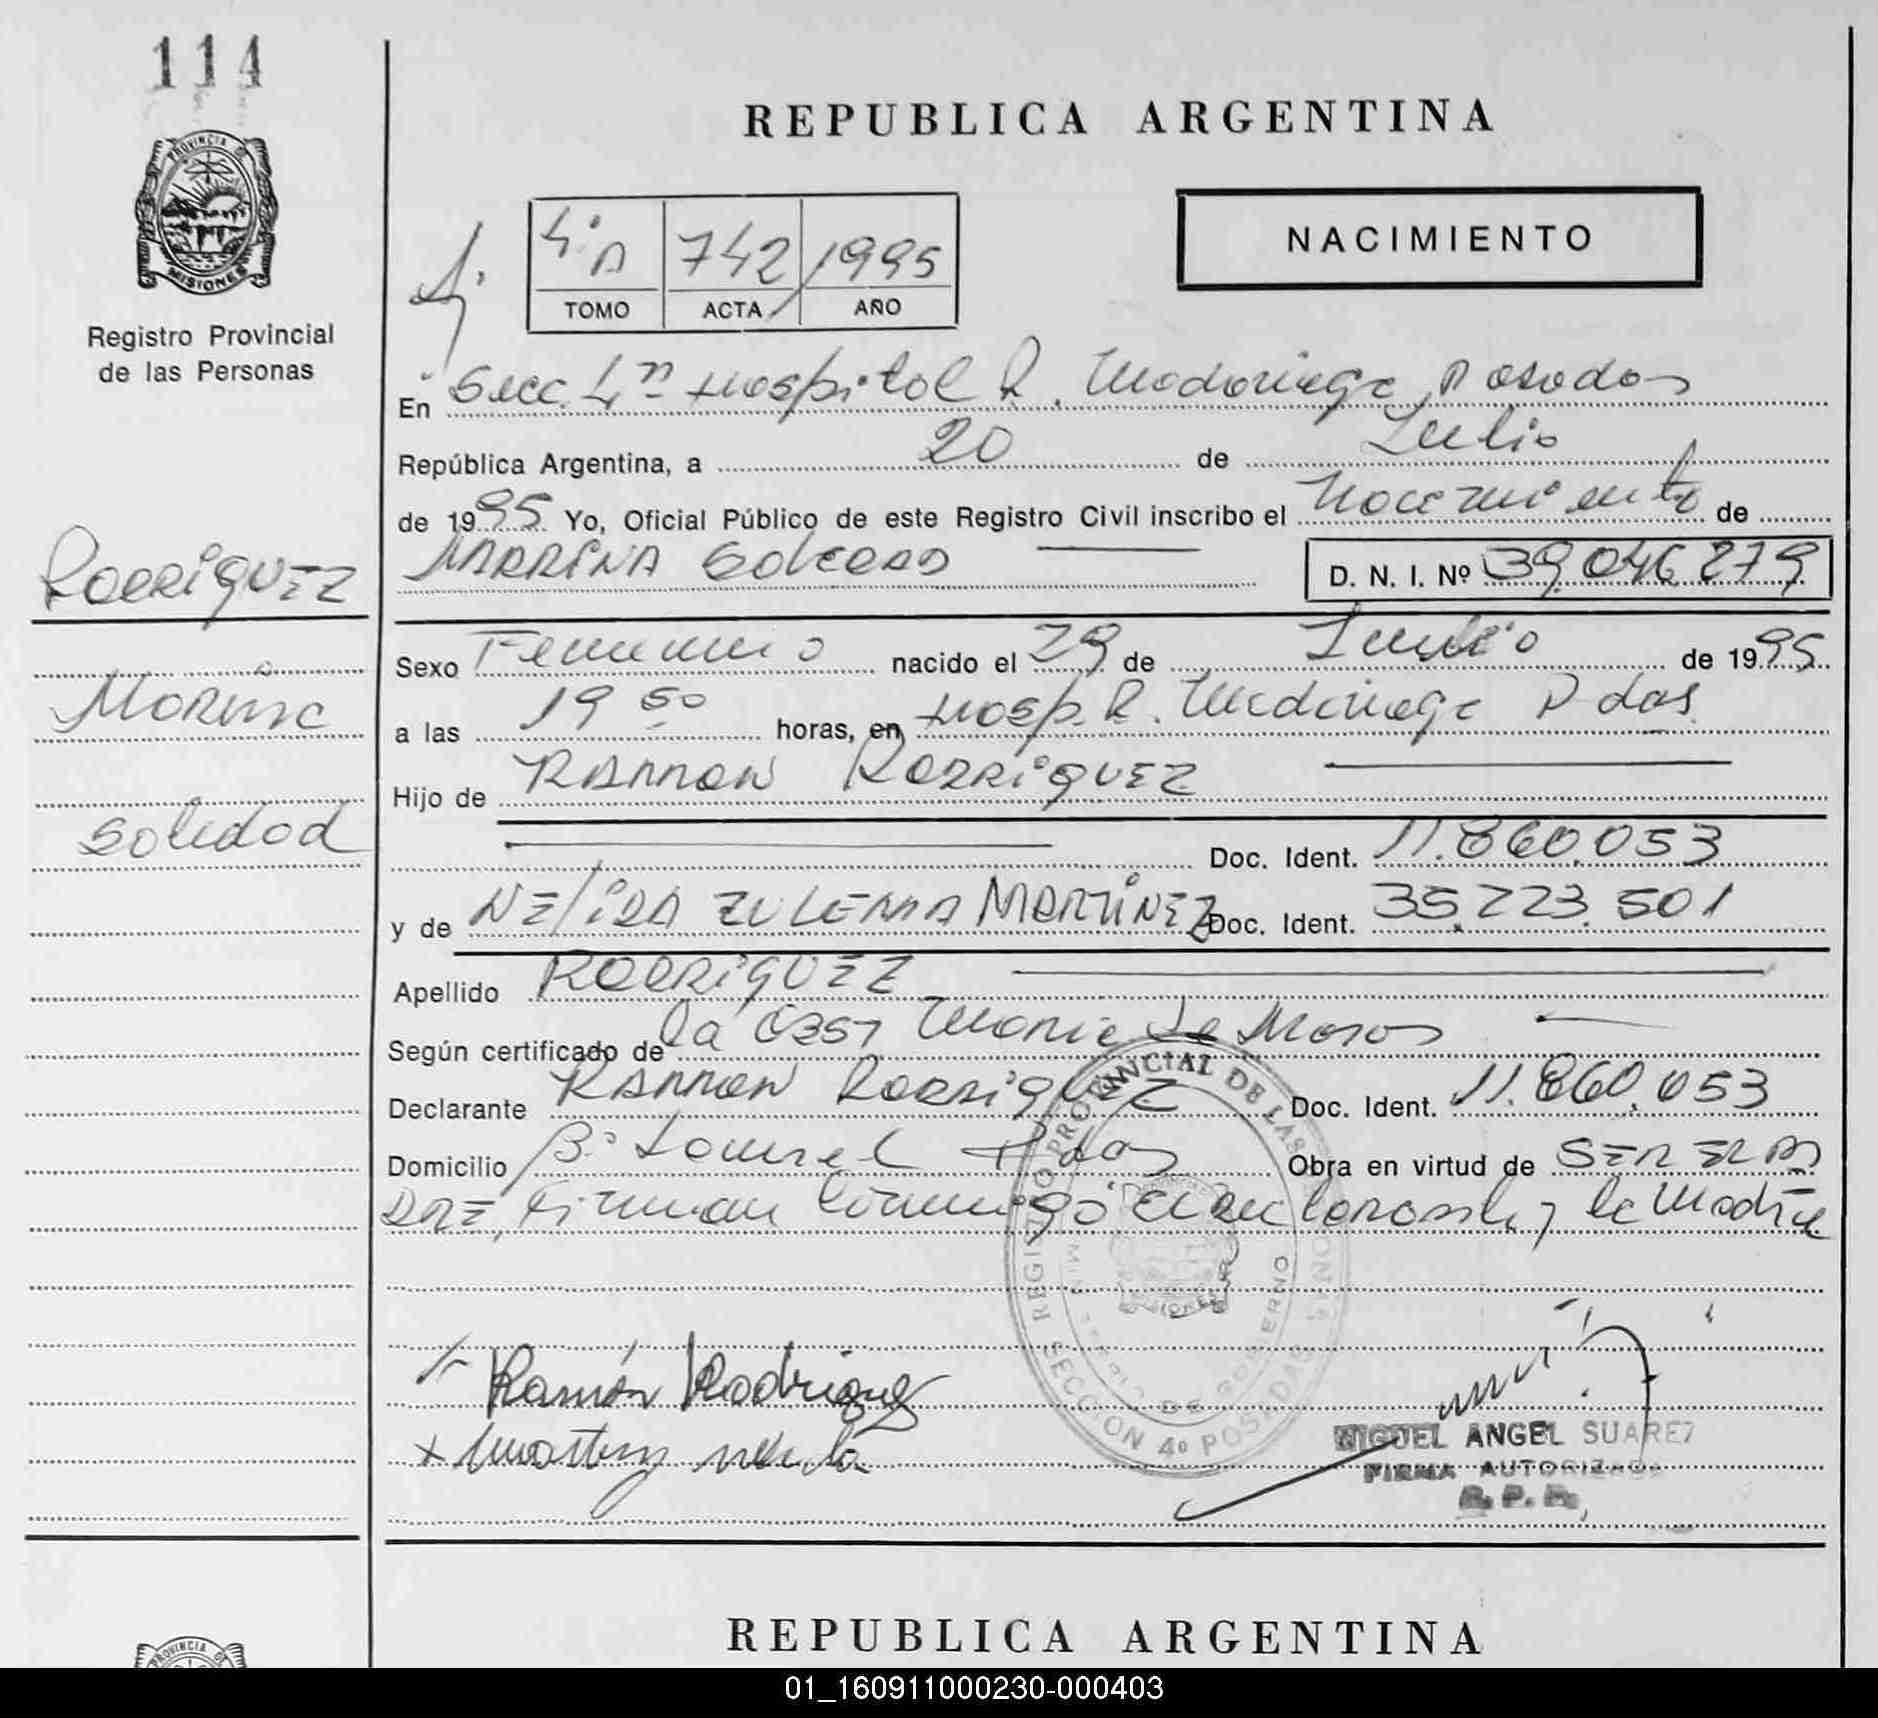 114
PROVINCIA DE
MISIONES
Registro Provincial
de las Personas
REPUBLICA ARGENTINA
NACIMIENTO
4º A 742 1995
TOMO ACTA AÑO
En Secc. 4ª Hospital R. Madariaga Posadas
República Argentina, a 20 de Julio
de 1995 Yo, Oficial Público de este Registro Civil inscribo el Nacimiento de
MARINA SOLEDAD D. N. I. Nº 39.046.279
RODRIGUEZ
Marina
Soledad
Sexo Femenino nacido el 29 de Junio de 1995
a las 19 50 horas, en Hosp. R. Madariaga Pdas.
Hijo de RAMON RODRIGUEZ
Doc. Ident. 11.860.053
y de NELIDA ZULEMA MARTINEZ Doc. Ident. 35.223.501
Apellido RODRIGUEZ
Según certificado de la Obst María de Moros
Declarante RAMON RODRIGUEZ Doc. Ident. 11.860.053
Domicilio Bº Pdas Obra en virtud de SER EL PA
DRE, Firman conmigo el declarante y la Madre
REGISTRO PROVINCIAL DE LAS
MINISTERIO DE GOBIERNO
SECCION 4º POSADAS
Ramón Rodriguez
x
MIGUEL ANGEL SUAREZ
FIRMA AUTORIZADA
R. P. P.
REPUBLICA ARGENTINA
PROVINCIA
01_160911000230-000403